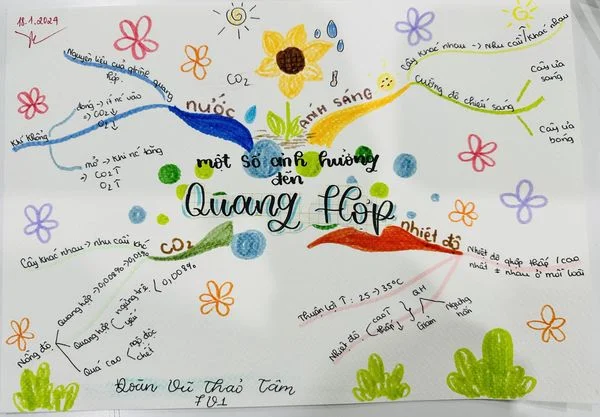 18.1.2024
Nguyên liệu của quang
hợp
nước
Khí khổng
đóng → ít
CO2↓
O2↓
mở → Khí nc tăng
→ CO2↑
O2↑
CO2
ÁNH SÁNG
Cây khác nhau → Nhu cầu khác nhau
Cường độ chiếu sáng
Cây ưa
sáng
Cây ưa
bóng
một số ảnh hưởng
đến
Quang Hợp
CO2
Cây khác nhau → nhu cầu khác
Nồng độ
Quang hợp
→ 0,008% → 0,01%
Quang hợp
ngừng trệ
yếu
0,008%
Quá cao
ngộ độc
chết
nhiệt độ
Nhiệt độ thấp / cao
nhất ± nhau ở mỗi loài
Thuận lợi T: 25 → 35°C
Nhiệt độ
cao
thấp
QH
Giảm
Ngừng
hẳn
Đoàn Vũ Thảo Tâm
7V1